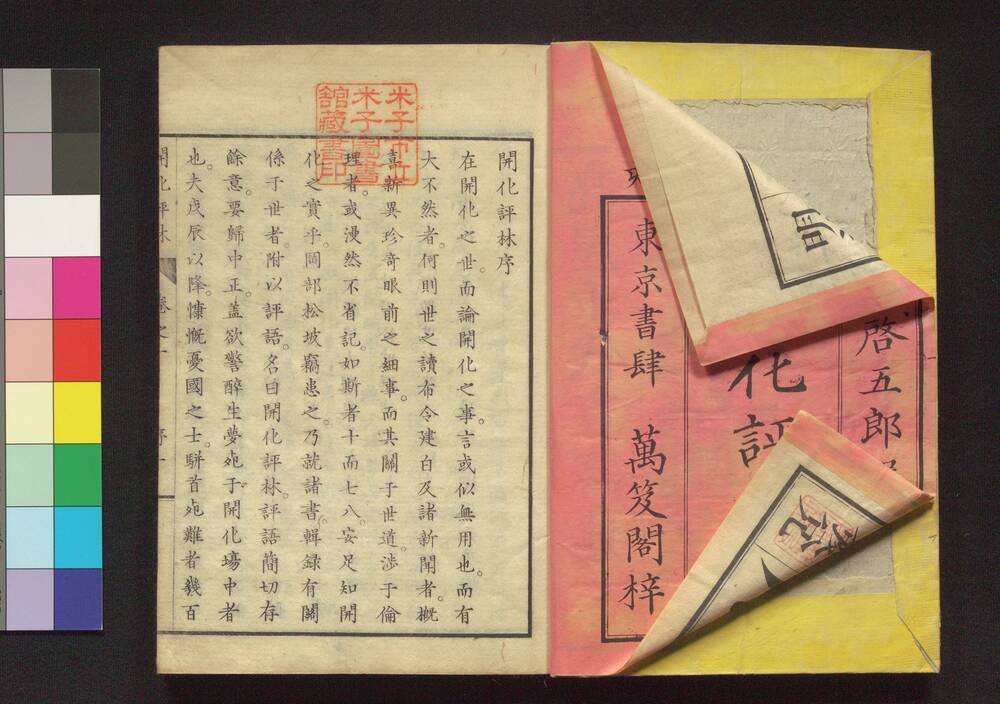 啓五郎
化評
東京書肆 萬笈閣梓
米子市立
米子圖書
館藏書印
開化評林序
在開化之世。而論開化之事。言或似無用也。而有
大不然者。何則世之讀布令建白及諸新聞者。概
喜新異珍奇眼前之細事。而其關于世道。渉于倫
理者。或漫然不省記。如斯者十而七八。安足知開
化之實乎。岡部松坡竊患之。乃就諸書。輯録有關
係于世者。附以評語。名曰開化評林。評語簡切存
餘意。要歸中正。蓋欲警醉生夢死于開化場中者
也。夫戊辰以降。慷慨憂國之士。駢首死難者幾百
開化評林